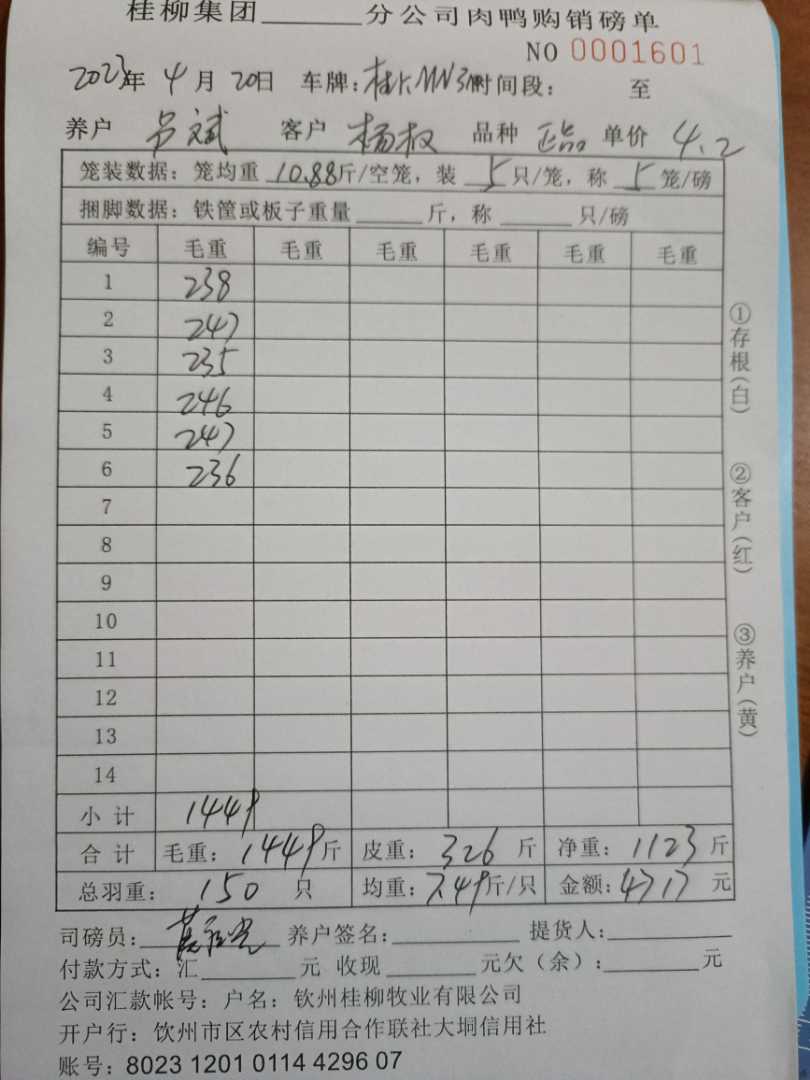 桂柳集团______分公司肉鸭购销磅单
NO 0001601
2023年 4月 20日 车牌: 时间段: 至
养户 吕斌 客户 杨权 品种 正品 单价 4.2
笼装数据: 笼均重 10.88斤/空笼, 装 5 只/笼, 称 5 笼/磅
捆脚数据: 铁筐或板子重量______斤, 称______只/磅
编号 毛重 毛重 毛重 毛重 毛重 毛重
1 238
2 247
3 235
4 246
5 247
6 236
7
8
9
10
11
12
13
14
小计 1449
合计 毛重: 1449斤 皮重: 326 斤 净重: 1123 斤
总羽重: 150 只 均重: 7.49斤/只 金额: 4717 元
①存根(白)
②客户(红)
③养户(黄)
司磅员: 养户签名:______ 提货人:______
付款方式: 汇______元 收现______元欠(余):______元
公司汇款帐号: 户名: 钦州桂柳牧业有限公司
开户行: 饮州市区农村信用合作联社大垌信用社
账号: 8023 1201 0114 4296 07